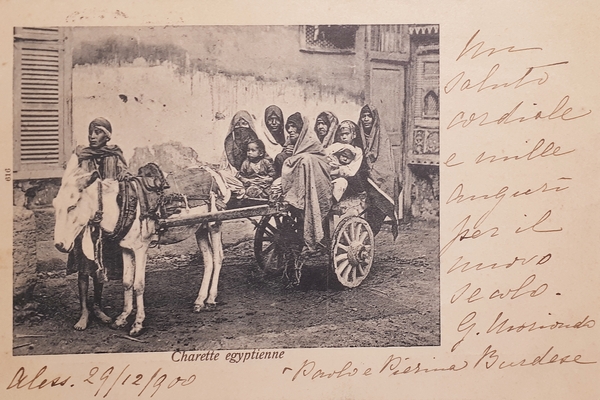 Un
saluto
cordiale
e mille
auguri
per il
nuovo
secolo.
G. Morionondo
616
Charette egyptienne
Aless. 29/12/900
- Paolo e Pierina Burdese